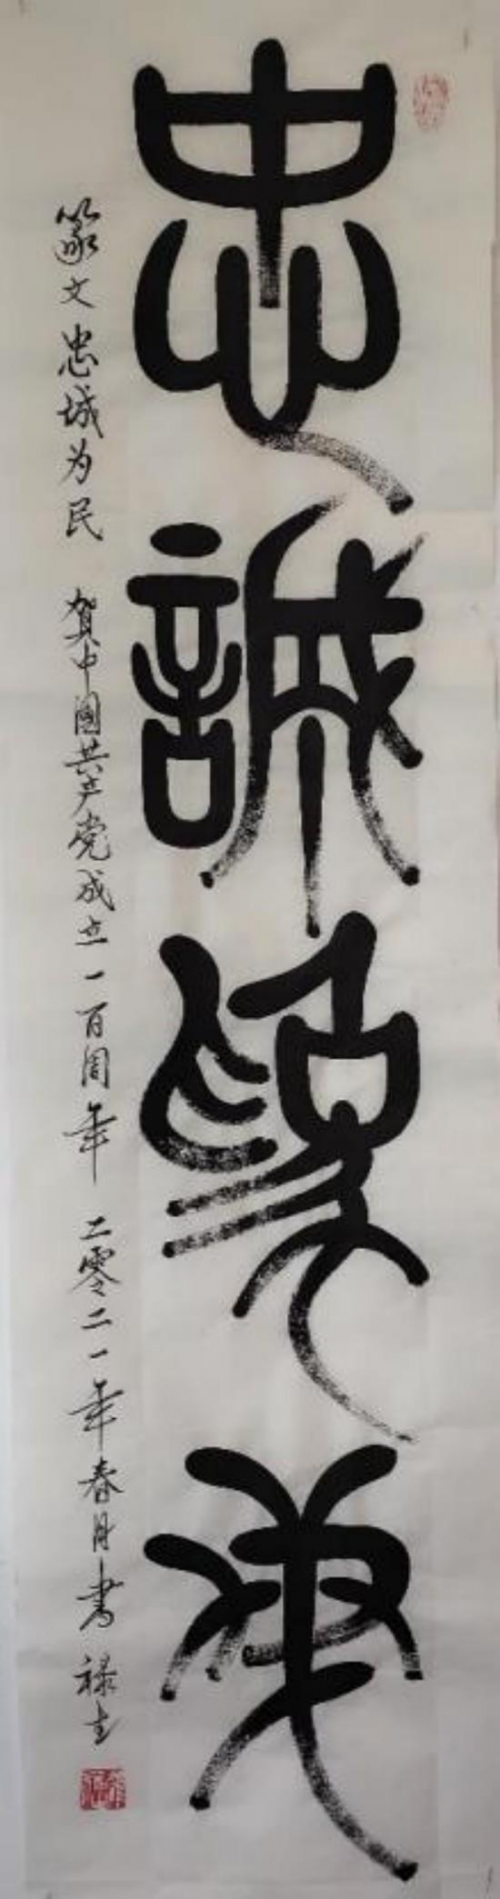 忠誠為民
篆文忠城为民 贺中國共产党成立一百周年 二零二一年春月書 禄